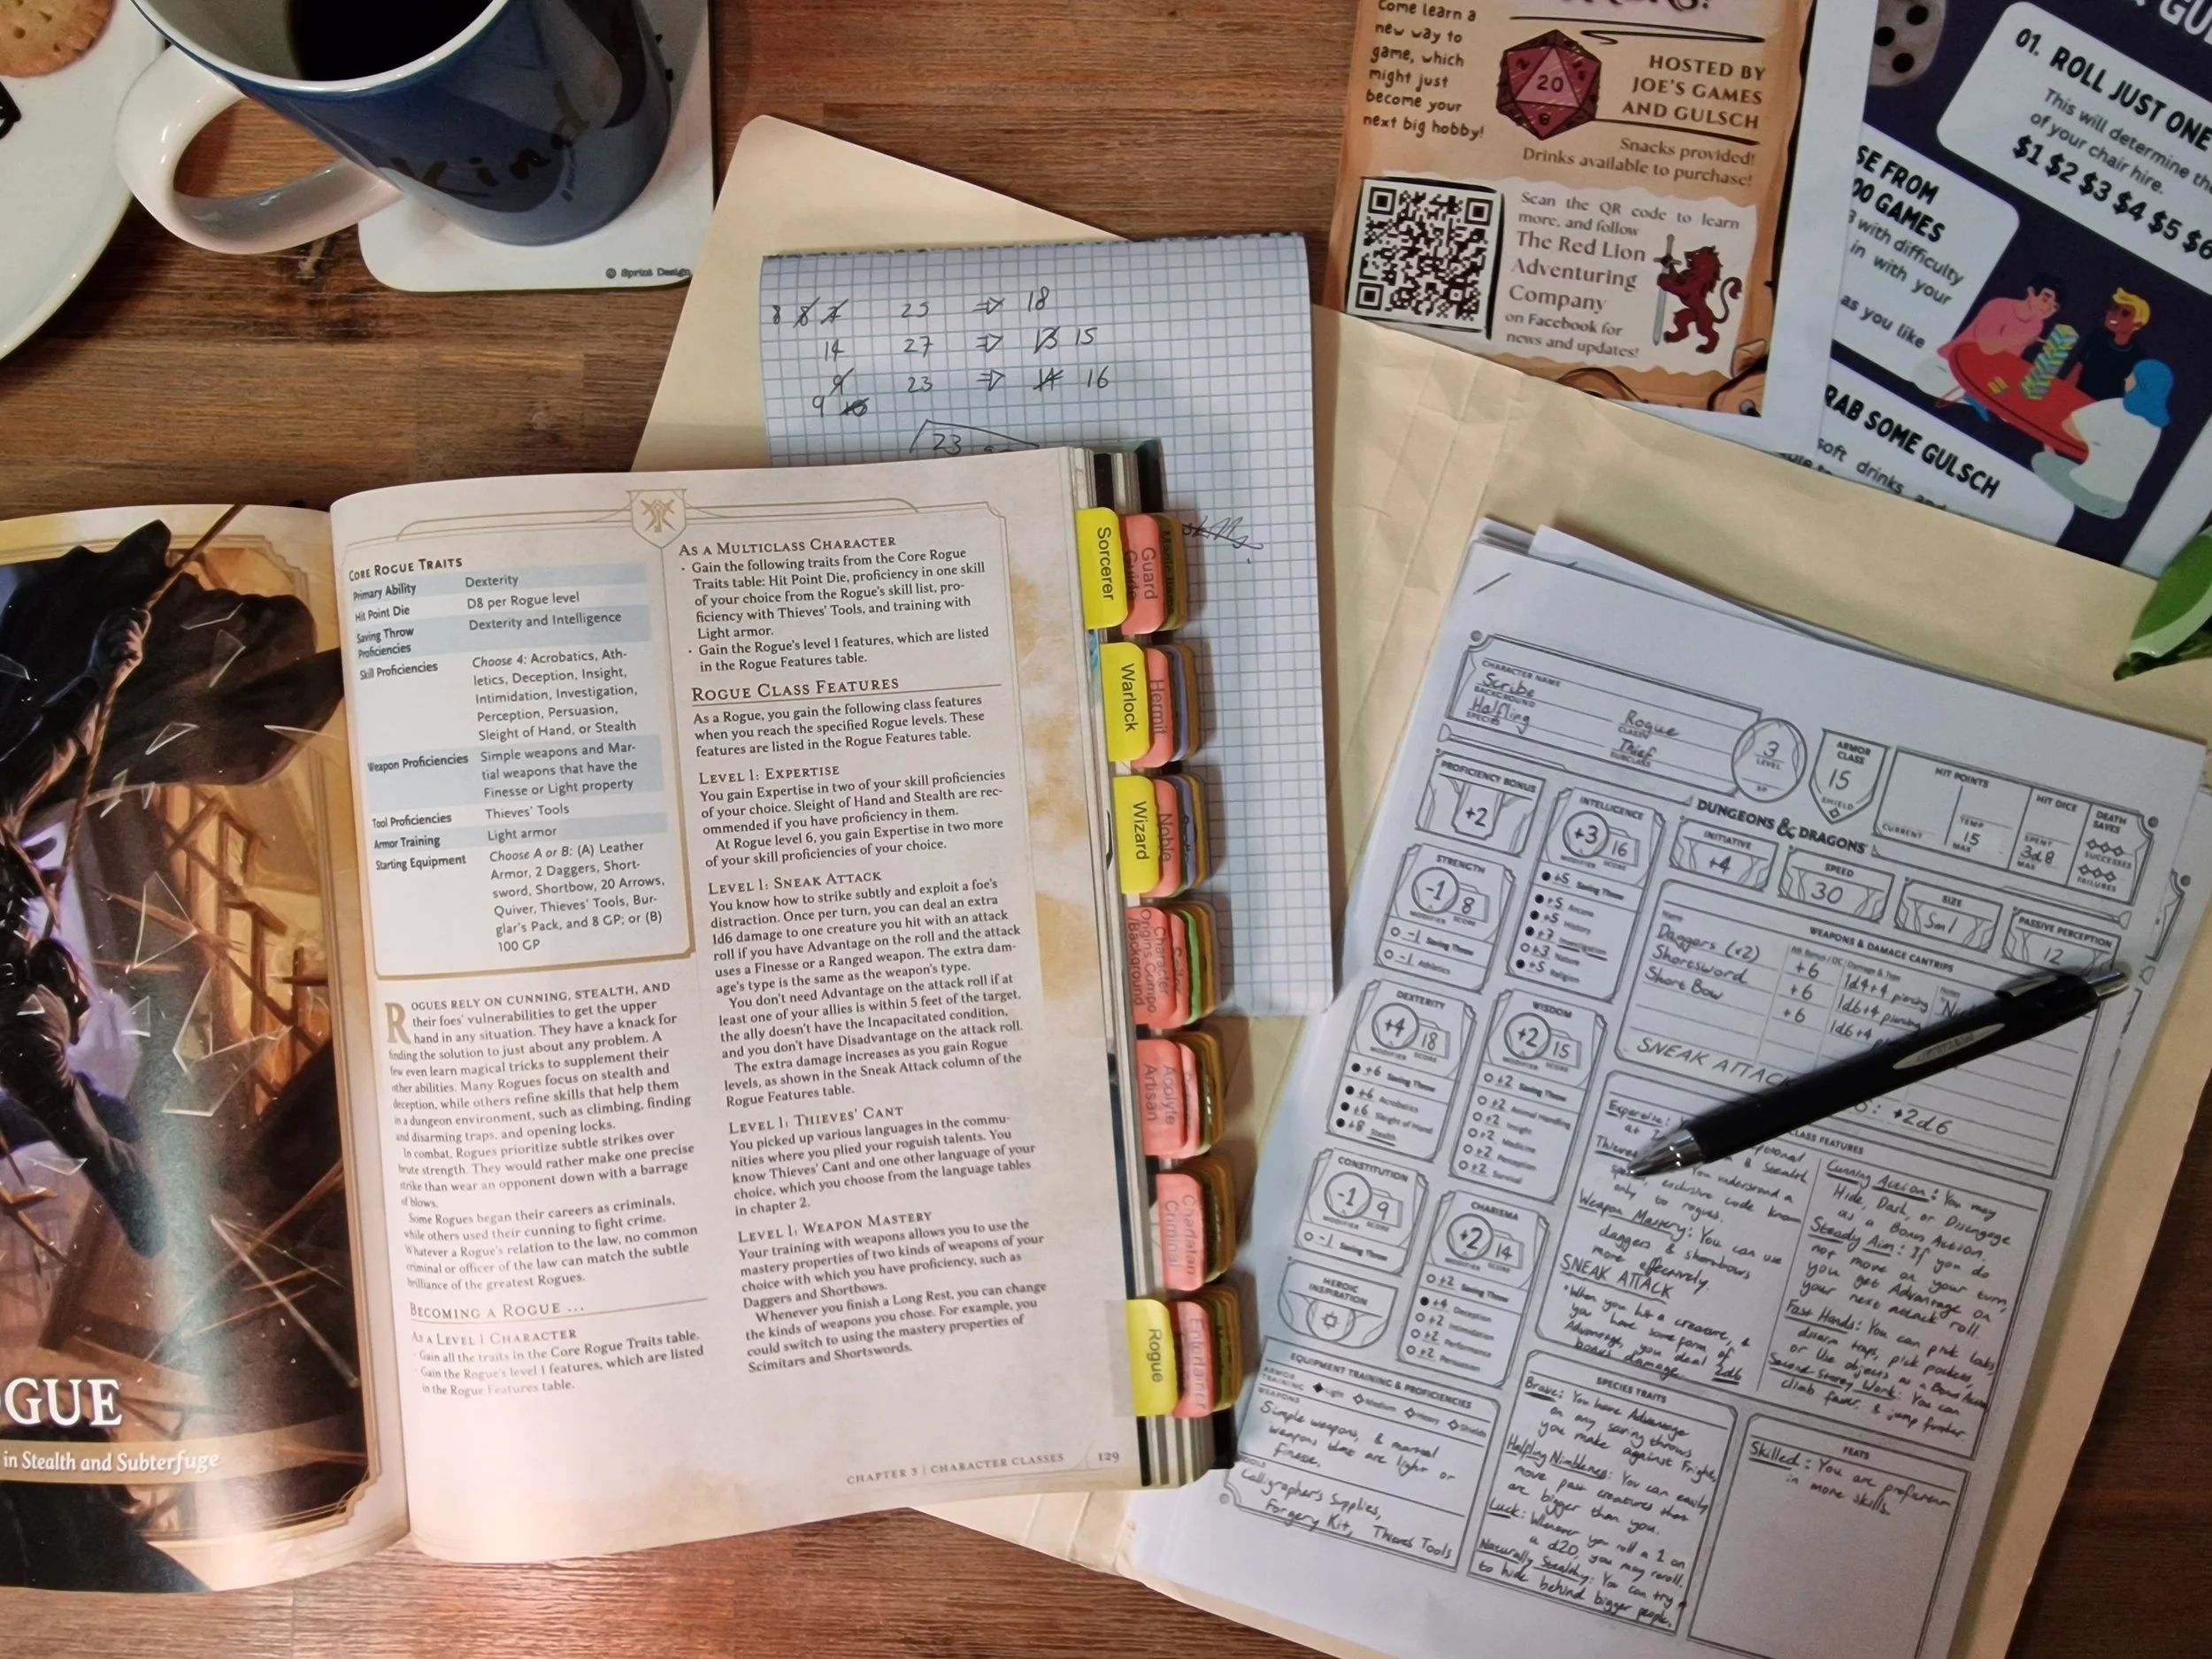 Kind
© Sprint Design
8 8 7 25 => 18
14 27 => 13 15
9 23 => 14 16
9 10
23
skills
Come learn a
new way to
game, which
might just
become your
next big hobby!
20
HOSTED BY
JOE'S GAMES
AND GULSCH
Snacks provided!
Drinks available to purchase!
Scan the QR code to learn
more, and follow
The Red Lion
Adventuring
Company
on Facebook for
news and updates!
01. ROLL JUST ONE
This will determine the
of your chair hire.
$1 $2 $3 $4 $5 $6
SE FROM
00 GAMES
with difficulty
in with your
as you like
RAB SOME GULSCH
soft drinks and
OGUE
in Stealth and Subterfuge
CORE ROGUE TRAITS
Primary Ability Dexterity
Hit Point Die D8 per Rogue level
Saving Throw Dexterity and Intelligence
Proficiencies
Skill Proficiencies Choose 4: Acrobatics, Ath-
letics, Deception, Insight,
Intimidation, Investigation,
Perception, Persuasion,
Sleight of Hand, or Stealth
Weapon Proficiencies Simple weapons and Mar-
tial weapons that have the
Finesse or Light property
Tool Proficiencies Thieves' Tools
Armor Training Light armor
Starting Equipment Choose A or B: (A) Leather
Armor, 2 Daggers, Short-
sword, Shortbow, 20 Arrows,
Quiver, Thieves' Tools, Bur-
glar's Pack, and 8 GP; or (B)
100 GP
ROGUES RELY ON CUNNING, STEALTH, AND
their foes' vulnerabilities to get the upper
hand in any situation. They have a knack for
finding the solution to just about any problem. A
few even learn magical tricks to supplement their
other abilities. Many Rogues focus on stealth and
deception, while others refine skills that help them
in a dungeon environment, such as climbing, finding
and disarming traps, and opening locks.
In combat, Rogues prioritize subtle strikes over
brute strength. They would rather make one precise
strike than wear an opponent down with a barrage
of blows.
Some Rogues began their careers as criminals,
while others used their cunning to fight crime.
Whatever a Rogue's relation to the law, no common
criminal or officer of the law can match the subtle
brilliance of the greatest Rogues.
BECOMING A ROGUE ...
AS A LEVEL 1 CHARACTER
· Gain all the traits in the Core Rogue Traits table.
· Gain the Rogue's level 1 features, which are listed
in the Rogue Features table.
AS A MULTICLASS CHARACTER
· Gain the following traits from the Core Rogue
Traits table: Hit Point Die, proficiency in one skill
of your choice from the Rogue's skill list, pro-
ficiency with Thieves' Tools, and training with
Light armor.
· Gain the Rogue's level 1 features, which are listed
in the Rogue Features table.
ROGUE CLASS FEATURES
As a Rogue, you gain the following class features
when you reach the specified Rogue levels. These
features are listed in the Rogue Features table.
LEVEL 1: EXPERTISE
You gain Expertise in two of your skill proficiencies
of your choice. Sleight of Hand and Stealth are rec-
ommended if you have proficiency in them.
At Rogue level 6, you gain Expertise in two more
of your skill proficiencies of your choice.
LEVEL 1: SNEAK ATTACK
You know how to strike subtly and exploit a foe's
distraction. Once per turn, you can deal an extra
1d6 damage to one creature you hit with an attack
roll if you have Advantage on the roll and the attack
uses a Finesse or a Ranged weapon. The extra dam-
age's type is the same as the weapon's type.
You don't need Advantage on the attack roll if at
least one of your allies is within 5 feet of the target,
the ally doesn't have the Incapacitated condition,
and you don't have Disadvantage on the attack roll.
The extra damage increases as you gain Rogue
levels, as shown in the Sneak Attack column of the
Rogue Features table.
LEVEL 1: THIEVES' CANT
You picked up various languages in the commu-
nities where you plied your roguish talents. You
know Thieves' Cant and one other language of your
choice, which you choose from the language tables
in chapter 2.
LEVEL 1: WEAPON MASTERY
Your training with weapons allows you to use the
mastery properties of two kinds of weapons of your
choice with which you have proficiency, such as
Daggers and Shortbows.
Whenever you finish a Long Rest, you can change
the kinds of weapons you chose. For example, you
could switch to using the mastery properties of
Scimitars and Shortswords.
CHAPTER 3 | CHARACTER CLASSES 129
Sorcerer
Guard
Guide
Warlock
Hermit
Wizard
Noble
Sailor
Character
Origins Compo
Background
Acolyte
Artisan
Charlatan
Criminal
Rogue
Entertainer
CHARACTER NAME
Scribe
BACKGROUND
Halfling
SPECIES
Rogue
CLASS
Thief
SUBCLASS
3
LEVEL
XP
ARMOR
CLASS
15
SHIELD
HIT POINTS
CURRENT
TEMP
15
MAX
HIT DICE
SPENT
3d8
MAX
DEATH
SAVES
SUCCESSES
FAILURES
DUNGEONS & DRAGONS
PROFICIENCY BONUS
+2
INITIATIVE
+4
SPEED
30
SIZE
Sml
PASSIVE PERCEPTION
12
STRENGTH
-1 8
MODIFIER SCORE
-1 Saving Throw
-1 Athletics
DEXTERITY
+4 18
MODIFIER SCORE
+6 Saving Throw
+6 Acrobatics
+6 Sleight of Hand
+8 Stealth
CONSTITUTION
-1 9
MODIFIER SCORE
-1 Saving Throw
HEROIC
INSPIRATION
INTELLIGENCE
+3 16
MODIFIER SCORE
+5 Saving Throw
+5 Arcana
+5 History
+7 Investigation
+3 Nature
+5 Religion
WISDOM
+2 15
MODIFIER SCORE
+2 Saving Throw
+2 Animal Handling
+2 Insight
+2 Medicine
+2 Perception
+2 Survival
CHARISMA
+2 14
MODIFIER SCORE
+2 Saving Throw
+4 Deception
+2 Intimidation
+2 Performance
+2 Persuasion
WEAPONS & DAMAGE CANTRIPS
Name Atk Bonus / DC Damage & Type Notes
Daggers (x2) +6 1d4+4 piercing
Shortsword +6 1d6+4 piercing
Short Bow +6 1d6+4
SNEAK ATTACK +2d6
CLASS FEATURES
Expertise:
& Stealth
Thieves
You understand a
exclusive code known
only to rogues.
Weapon Mastery: You can use
daggers & shortbows
more effectively.
SNEAK ATTACK
· When you hit a creature, &
you have some form of
Advantage, you deal 2d6
bonus damage.
Cunning Action: You may
Hide, Dash, or Disengage
as a Bonus Action.
Steady Aim: If you do
not move on your turn,
you get Advantage on
your next attack roll.
Fast Hands: You can pick locks,
disarm traps, pick pockets,
or Use objects as a Bonus Action
Second-storey Work: You can
climb faster, & jump further.
EQUIPMENT TRAINING & PROFICIENCIES
ARMOR
TRAINING Light Medium Heavy Shields
WEAPONS
Simple weapons, & martial
weapons that are light or
finesse.
TOOLS
Calligrapher's Supplies,
Forgery Kit, Thieves Tools
SPECIES TRAITS
Brave: You have Advantage
on any saving throws
you make against Fright.
Halfling Nimbleness: You can easily
move past creatures that
are bigger than you.
Luck: Whenever you roll a 1 on
a d20, you may reroll.
Naturally Stealthy: You can try
to hide behind bigger people.
FEATS
Skilled: You are proficient
in more skills.